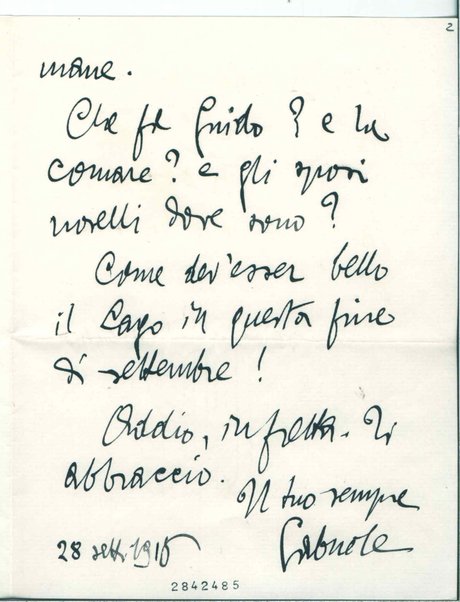 2
mane.
Che fa Guido? e la
comare? e gli sposi
novelli dove sono?
Come dev'esser bello
il Lago in questa fine
di settembre!
Addio, in fretta. Ti
abbraccio.
Il tuo sempre
Gabriele
28 sett. 1915
2842485